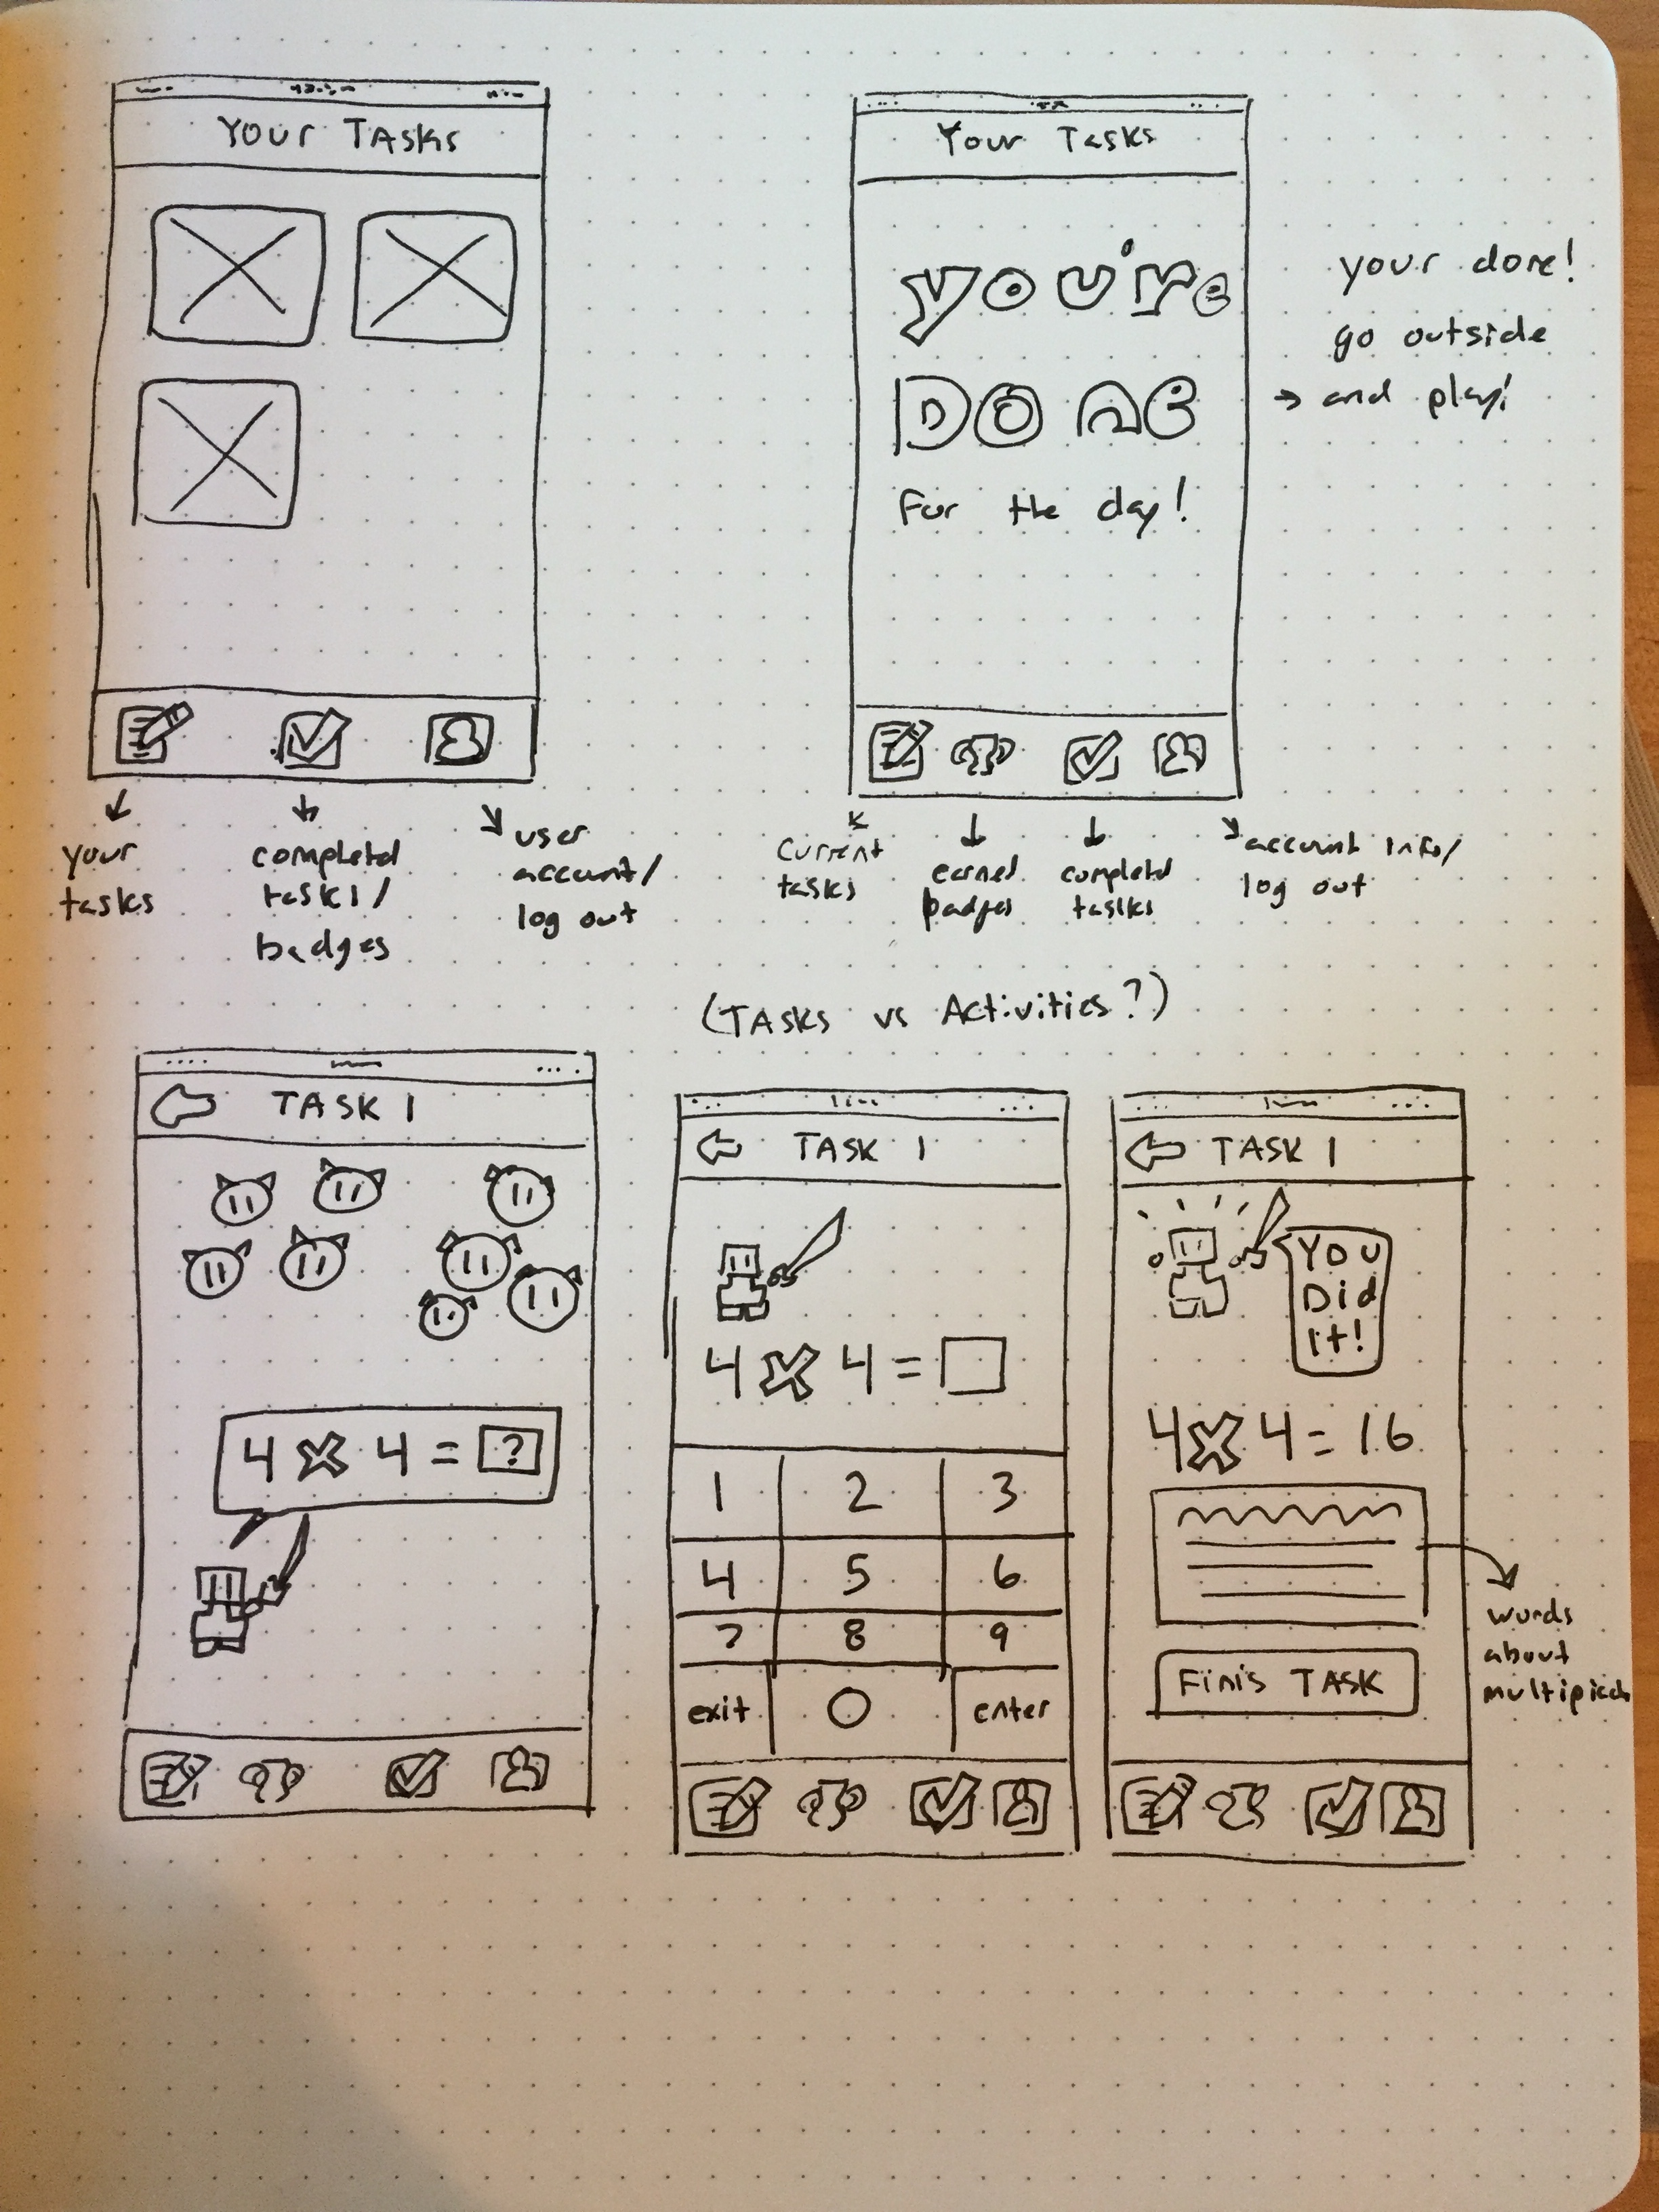 Your Tasks
your
tasks
completed
tasks/
badges
user
account/
log out
Your Tasks
you're
Done
For the day!
your done!
go outside
→ and play!
current
tasks
earned
badges
completed
tasks
account info/
log out
(Tasks vs Activities?)
TASK 1
4 × 4 = ?
TASK 1
4 × 4 =
1 2 3
4 5 6
7 8 9
exit 0 enter
TASK 1
You
Did
it!
4 × 4 = 16
Finis TASK
words
about